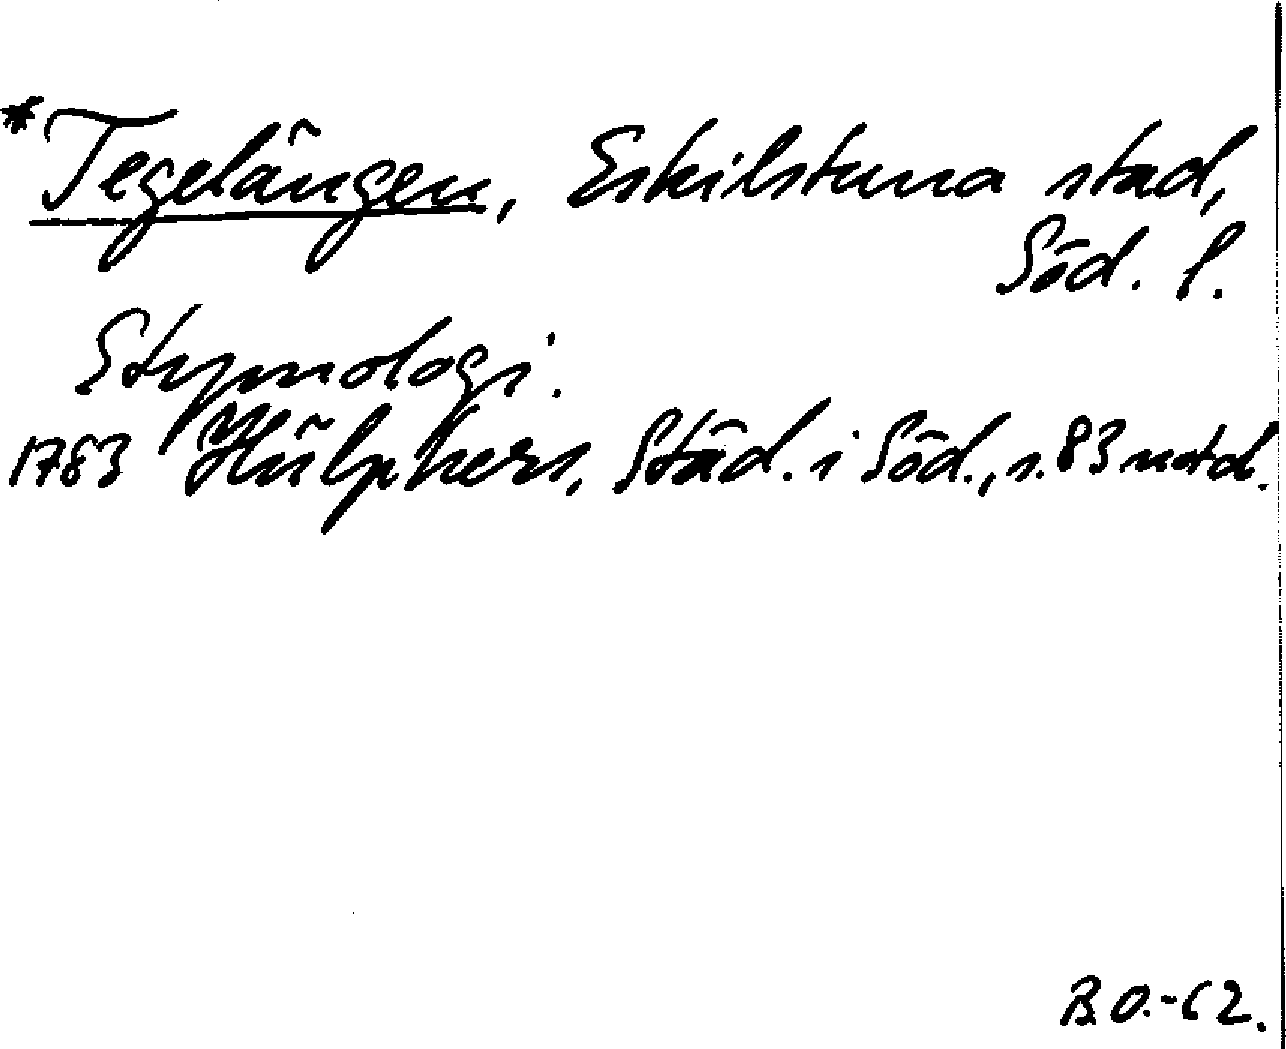 *Tegelängen, Eskilstuna stad,
Söd. l.
Etymologi.
1783 Hülphers, Städ. i Söd., s. 83 notd.
B.O.-62.